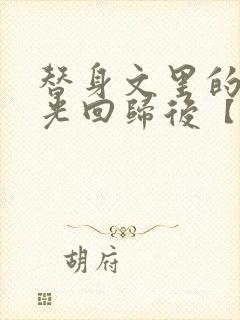 替身文里的
光回歸後【
胡府